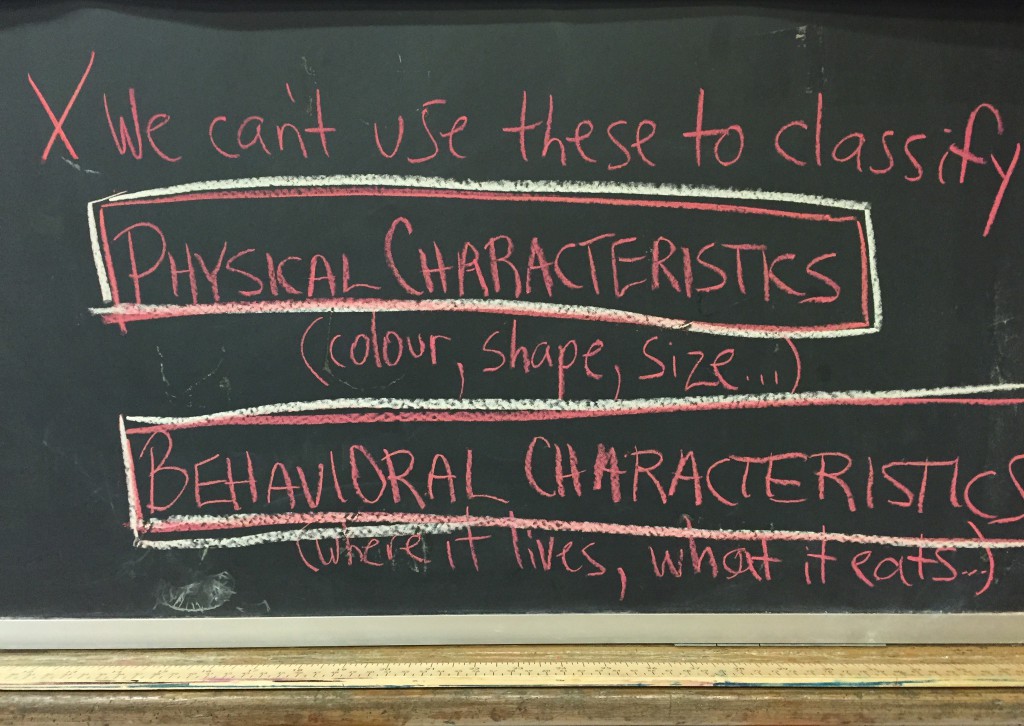 X We can't use these to classify
PHYSICAL CHARACTERISTICS
(colour, shape, size...)
BEHAVIORAL CHARACTERISTICS
(where it lives, what it eats...)